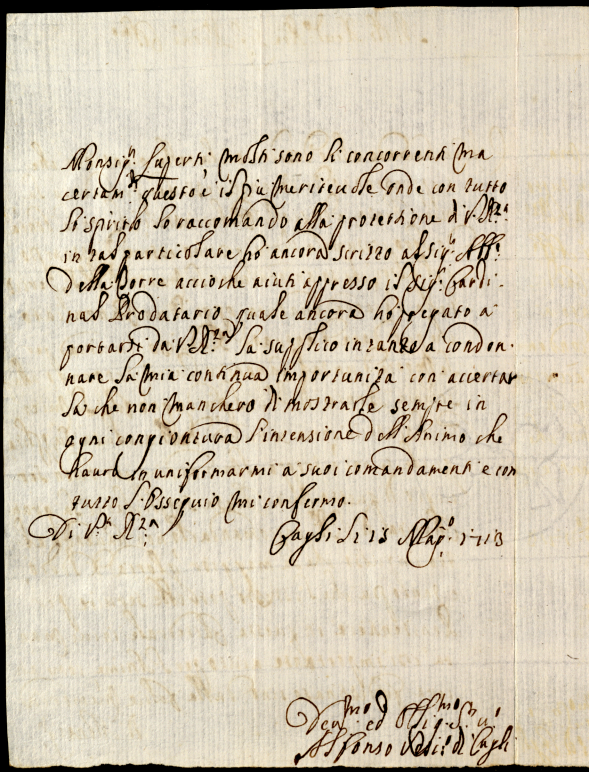 Monsig.r Luperti molti sono li concorrenti ma
certam.te questo è il più meriteuole onde con tutto
lo spirito lo raccomando alla protettione di V. R.za
in tal particolare hò ancora scritto al Sig.r
della Torre accioche aiuti appresso il Sig.r Cardi-
nal Prodatario quale ancora hò pregato à
portarsi da V. R.za la supplico intanto a condon-
nare la mia continua importunità con accertar
la che non mancherò di mostrarle sempre in
ogni congiontura l'intensione dell'Animo che
haurò in uniformarmi a suoi comandamenti e con
tutto l'Ossequio mi confermo.
Di V.ra R.za Cagli li 13 Mag.o 1713
Deu.mo ed Obli.mo Ser.
Alfonso Vesc.o di Cagli